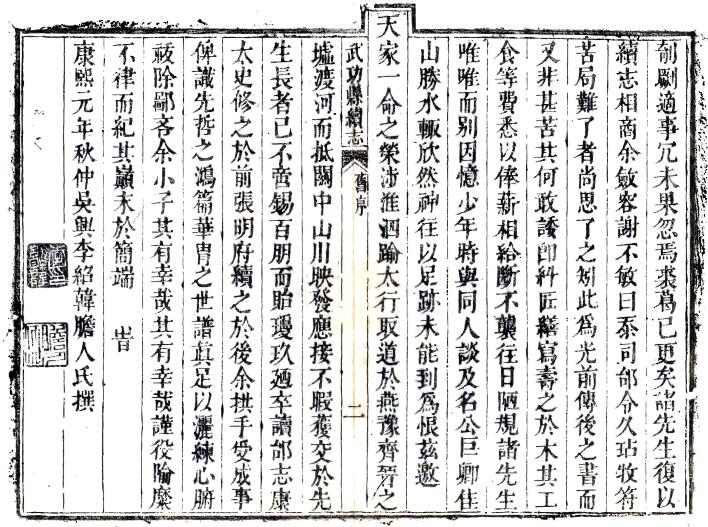 剞劂適事冗未果忽焉裘葛已更矣諸先生復以
續志相商余斂容謝不敏曰忝司邰令久玷牧符
苦局難了者尚思了之矧此爲光前傳後之書而
又非甚苦其何敢諉卽糾匠繕寫壽之於木其工
食等費悉以俸薪相給斷不襲往日陋規諸先生
唯唯而别因憶少年時與同人談及名公巨卿佳
山勝水輙欣然神往以足跡未能到爲恨兹邀
天家一命之榮沛淮泗踰太行取道於燕豫齊晉之
武功縣續志 舊序 二
墟渡河而抵關中山川映發應接不暇獲交於先
生長者已不啻錫百朋而貽瓊玖廼卒讀邰志康
太史修之於前張明府續之於後余拱手受成事
俾識先哲之鴻篇華胄之世譜眞足以灑練心腑
祓除鄙吝余小子其有幸哉其有幸哉謹役隃糜
不律而紀其巔末於簡端 旹
康熙元年秋仲吳興李紹韓膽人氏撰